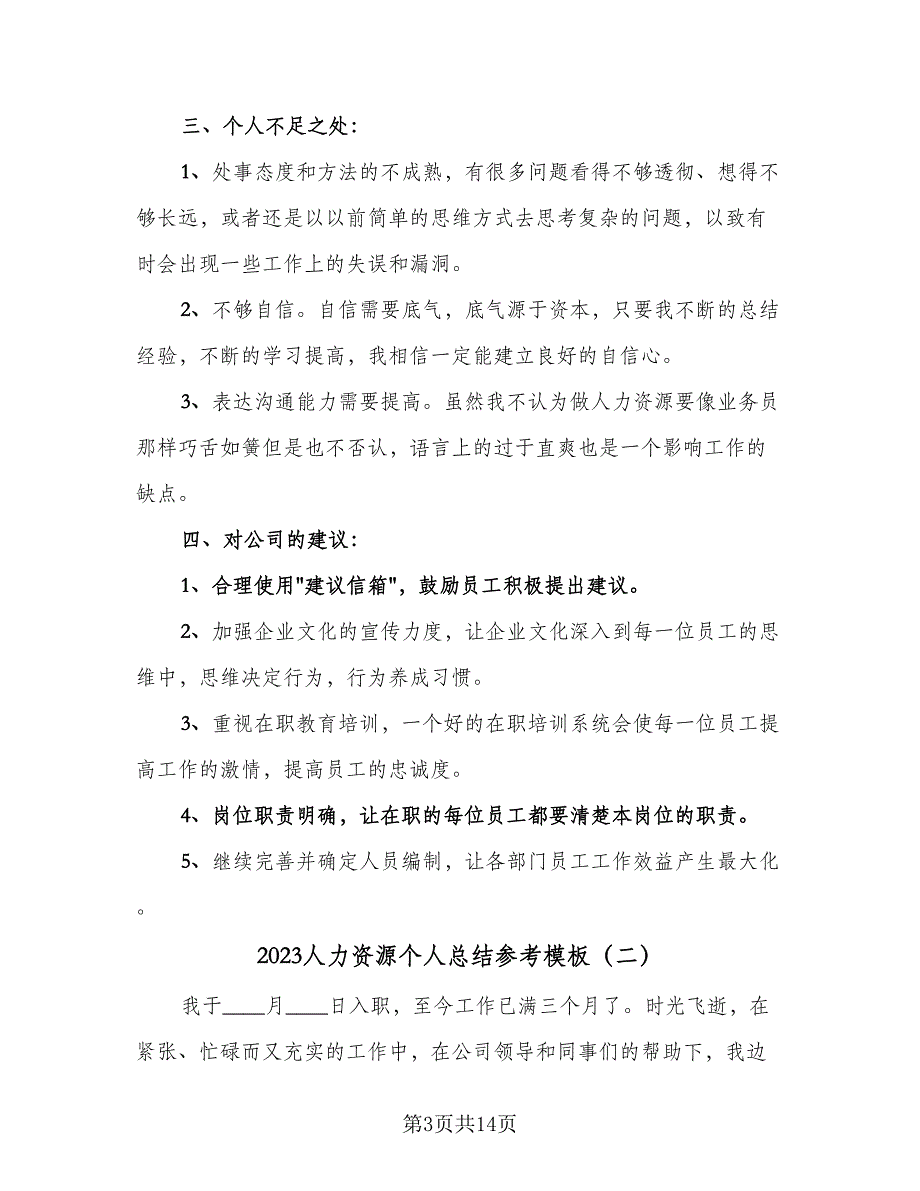 三、个人不足之处：
1、处事态度和方法的不成熟，有很多问题看得不够透彻、想得不
够长远，或者还是以以前简单的思维方式去思考复杂的问题，以致有
时会出现一些工作上的失误和漏洞。
2、不够自信。自信需要底气，底气源于资本，只要我不断的总结
经验，不断的学习提高，我相信一定能建立良好的自信心。
3、表达沟通能力需要提高。虽然我不认为做人力资源要像业务员
那样巧舌如簧但是也不否认，语言上的过于直爽也是一个影响工作的
缺点。
四、对公司的建议：
1、合理使用"建议信箱"，鼓励员工积极提出建议。
2、加强企业文化的宣传力度，让企业文化深入到每一位员工的思
维中，思维决定行为，行为养成习惯。
3、重视在职教育培训，一个好的在职培训系统会使每一位员工提
高工作的激情，提高员工的忠诚度。
4、岗位职责明确，让在职的每位员工都要清楚本岗位的职责。
5、继续完善并确定人员编制，让各部门员工工作效益产生最大化
。
2023人力资源个人总结参考模板（二）
我于____月____日入职，至今工作已满三个月了。时光飞逝，在
紧张、忙碌而又充实的工作中，在公司领导和同事们的帮助下，我边
第3页共14页